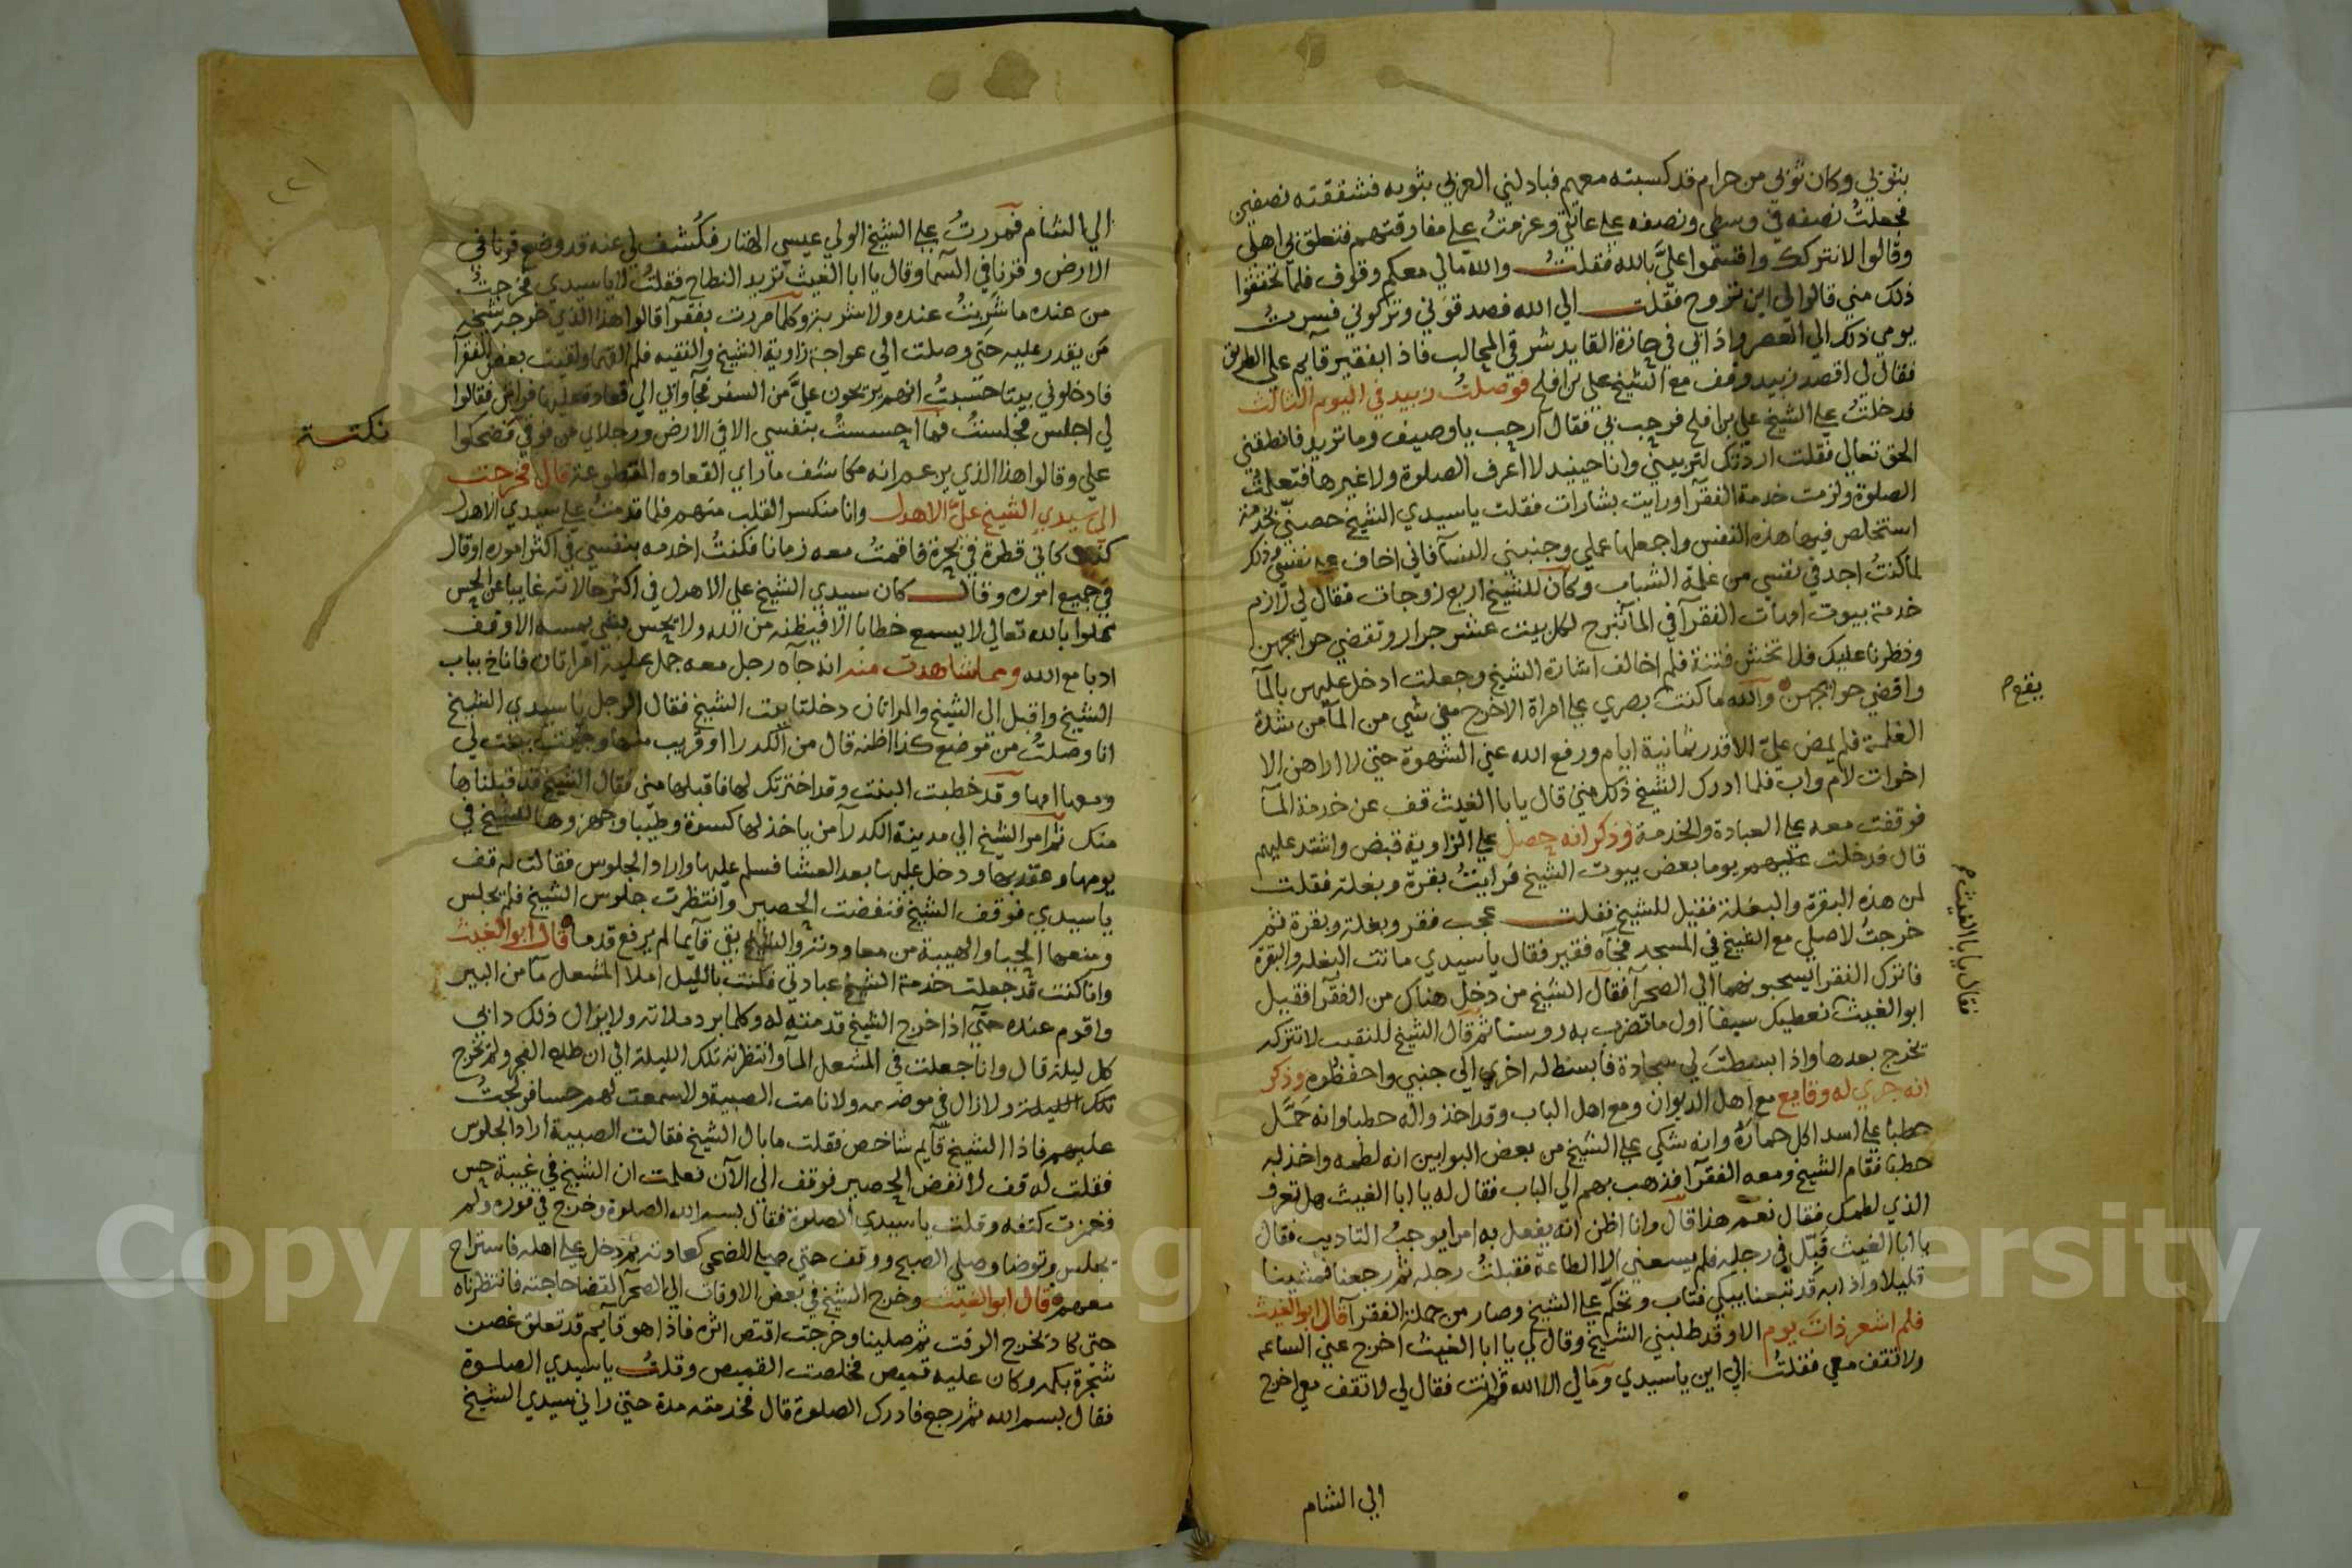 بثوبي وكان ثوبي من حرام قد كسبته معهم فبادلني العزلي بثوبه فشققته نصفين
فجعلتُ نصفه في وسطي ونصفه على عاتقي وعزمتُ على مفارقتهم فتعلق بي اهلي
وقالوا لا نتركك واقسموا عليَّ بالله فقلتُ والله مالي معكم وقوف فلما تحققوا
ذلك مني قالوا لي اين تروح فقلت الي الله فصدقوني وتركوني فسرتُ
يومي ذلك الي العصر واذ اني في جازة القايد شرقي المحالب فاذا بفقير قآيم على الطريق
فقال لي اقصد زبيد وقف مع الشيخ علي بن افلح فوصلتُ زبيد في اليوم الثالث
فدخلتُ على الشيخ علي بن افلح فرحب بي فقال ارحب يا وصيف وما تريد فانطقني
الحق تعالي فقلت اردتك لتربيني وانا حينيد لا اعرف الصلوة ولا غيرها فتعلمتُ
الصلوة ولزمت خدمة الفقرآ ورايت بشارات فقلت يا سيدي الشيخ خصني بخدمة
استخلص فيها هذه النفس واجعلها عملي وجنبني النسآ فاني اخاف على نفسي وذلك
لما كنتُ اجد في نفسي من غلمة الشباب وكان للشيخ اربع زوجات فقال لي لازم
خدمة بيوت امهات الفقرآ في المآ تنزح لكل بيت عشر جرار وتقضي حوايجهن
ونظرنا عليك فلا تخش فتنة فلم اخالف اشارة الشيخ وجعلت ادخل عليهن بالمآ
واقضي حوايجهن والله ما كنت بصري على امراة الا خرج مني شي من المآ من شدة
الغلمة فلم يمض عليّ الا قدر ثمانية ايام ورفع الله عني الشهوة حتى لا اراهن الا
اخوات لام واب فلما ادرك الشيخ ذلك مني قال يا با الغيث قف عن خدمة المآ
فوقفت معه على العبادة والخدمة وذكر انه حصل على الزاوية قبض واشتد عليهم
قال فدخلت عليهم يوما بعض بيوت الشيخ فرايتُ بقرة وبغلة فقلت
لمن هذه البقرة والبغلة فقيل للشيخ فقلت عجب فقر وبغلة وبقرة ثم
خرجتُ لاصلي مع الشيخ في المسجد فجآه فقير فقال يا سيدي ماتت البغلة والبقرة
فانزل الفقرا يسحبونهما الي الصحرآ فقال الشيخ من دخل هناك من الفقرآ فقيل
ابو الغيث نعطيك سيفا اول ما تضرب به روسنا ثم قال الشيخ للنقيب لا تتركه
تخرج بعدها واذا بسطتَ لي سجادة فابسط له اخري الى جنبي واحفظوه وذكر
انه جري له وقايع مع اهل الديوان ومع اهل الباب وقد اخذوا له حطبا وانه حمَّل
حطبا على اسد اكل حماره وانه شكي على الشيخ من بعض البوابين انه لطمه واخذ له
حطبا فقام الشيخ ومعه الفقرآ فذهب بهم الي الباب فقال له يا ابا الغيث هل تعرف
الذي لطمك فقال نعم هذا قال وانا اظن انه يفعل به امرا يوجبُ التاديب فقال
يا ابا الغيث قبّل في رجله فلم يسعني الا الطاعة فقبلتُ رجله ثم رجعنا فمشينا
قليلا واذا به قد تبعنا يبكي فتاب وتحكّم على الشيخ وصار من جملة الفقرآ قال ابو الغيث
فلم اشعر ذات يوم الا وقد طلبني الشيخ وقال لي يا ابا الغيث اخرج عني الساعه
ولا تقف معي فقلتُ الي اين يا سيدي ومالي الا الله ثم انت فقال لي لا تقف معي اخرج
الي الشام
يقع م
فقال يا ابا الغيث م
الي الشام فمررتُ على الشيخ الولي عيسي الهتار فكُشف لي عنه قد وضع قرنا في
الارض وقرنا في السما وقال يا ابا الغيث تريد النطاح فقلتُ لا يا سيدي فخرجتُ
من عنده ما شربتُ عنده ولا شربة وكلما مررت بفقرآ قالوا هذا الذي خرجه شيخه
من يقدر عليه حتي وصلت الي عواجة زاوية الشيخ والفقيه فلم القهما ولقيت بعض الفقرآ
فادخلوني بيتا حسبتُ انهم يريحون عليَّ من السفر فجآوا بي الي قعادة عليها فراش فقالوا
لي اجلس فجلستُ فما احسستُ بنفسي الا في الارض ورجلاي من فوقي فضحكوا
علي وقالوا هذا الذي يزعم انه مكاشف ما راي القعاده المقطوعة قال فخرجت
الى سيدي الشيخ عليَّ الاهدل وانا منكسر القلب منهم فلما قدمتُ على سيدي الاهدل
كنت كاني قطرة في بحرة فاقمتُ معه زمانا فكنتُ اخدمه بنفسي في اكثر اموره او قال
في جميع اموره وقال كان سيدي الشيخ علي الاهدل في اكثر حالاته غايبا عن الحس
مملوا بالله تعالي لا يسمع خطابا الا فيظنه من الله ولا يحس بشي يمسه الا وقف
ادبا مع الله ومما شاهدت منه انه جآه رجل معه جمل عليه امراتان فاناخ بباب
الشيخ واقبل الى الشيخ والمراتان دخلتا بيت الشيخ فقال الرجل يا سيدي الشيخ
انا وصلتُ من موضع كذا اظنه قال من الكدرا او قريب منها وجيت ببنت لي
ومعها امها وقد خطبت البنت وقد اخترتك لها فاقبلها مني فقال الشيخ قد قبلناها
منك ثم امر الشيخ الي مدينة الكدرآ من ياخذ لها كسوة وطيبا وجهزوها للشيخ في
يومها وعقد بها ودخل عليها بعد العشا فسلم عليها واراد الجلوس فقالت له قف
يا سيدي فوقف الشيخ فنفضت الحصير وانتظرت جلوس الشيخ فلم يجلس
ومنعها الحيا والهيبة من معاودته والشيخ بقي قآيما لم يرفع قدما قال ابو الغيث
وانا كنت قد جعلت خدمة الشيخ عبادتي فكنت بالليل املا المشعل مآ من البير
واقوم عنده حتى اذا خرج الشيخ قدمته له وكلما برد ملاته ولا يزال ذلك دابي
كل ليلة قال وانا جعلت في المشعل المآ وانتظرته تلك الليلة الي ان طلع الفجر ولم يخرج
تلك الليلة ولا زال في موضعه ولا نامت الصبية ولا سمعت لهم حسا فولجتُ
عليهم فاذا الشيخ قآيم شاخص فقلت ما بال الشيخ فقالت الصبية اراد الجلوس
فقلت له قف لانفض الحصير فوقف الى الآن فعلمت ان الشيخ في غيبة حس
فغمزت كتفه وقلت يا سيدي الصلوة فقال بسم الله الصلوة وخرج في فوره ولم
يجلس وتوضا وصلي الصبح ووقف حتي صلى الضحى كعادته ثم دخل على اهله فاستراح
معهم وقال ابو الغيث وخرج الشيخ في بعض الاوقات الي الصحرآ لقضا حاجته فانتظرناه
حتى كاد يخرج الوقت ثم صلينا وخرجت اقتص اثره فاذا هو قآيم قد تعلق غصن
شجرة بكمه وكان عليه قميص فخلصت القميص وقلتُ يا سيدي الصلوة
فقال بسم الله ثم رجع فادرك الصلوة قال فخدمته مدة حتى راني سيدي الشيخ
نكتة
Copyright © King Saud University